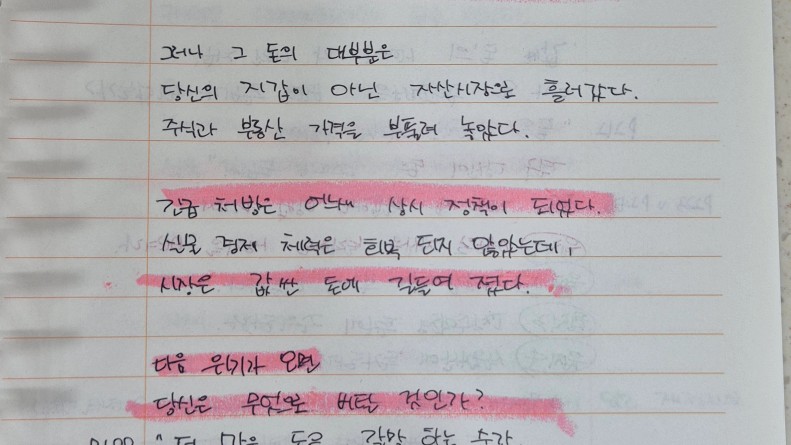 그러나 그 돈의 대부분은
당신의 지갑이 아닌 자산시장으로 흘러갔다.
주식과 부동산 가격을 부풀려 놓았다.
긴급 처방은 어느새 상시 정책이 되었다.
실물 경제 체력은 회복 되지 않았는데,
시장은 값싼 돈에 길들여 졌다.
다음 위기가 오면
당신은 무엇으로 버틸 것인가?
" 더 많은 돈을 갈망 하는 순간